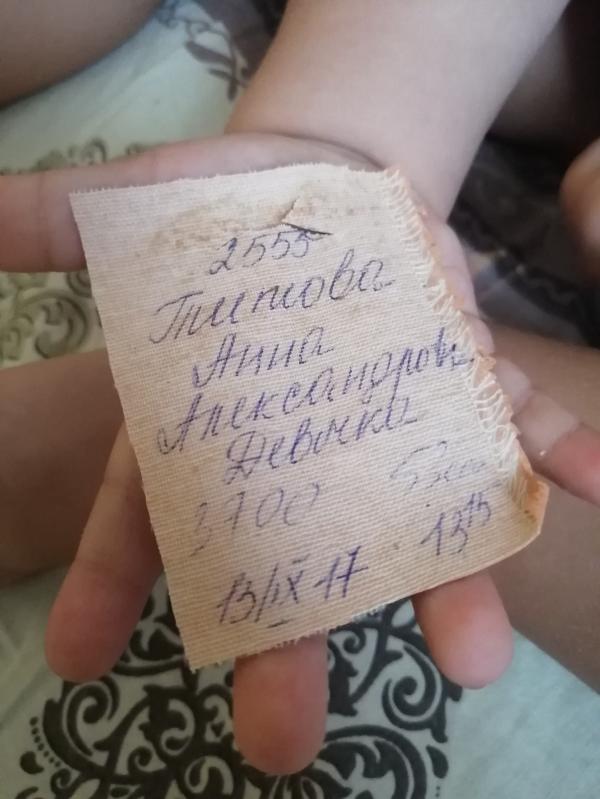 2555
Титова
Анна
Александров
Девочка
3700
13/IX 17 13 15